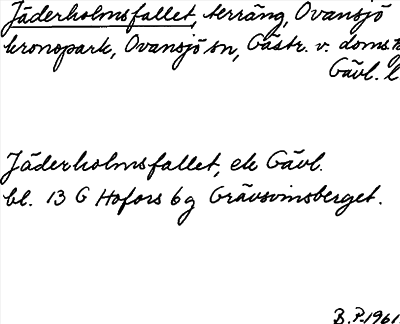 Jäderholmsfallet, terräng, Ovansjö
kronopark, Ovansjö sn, Gästr. v. doms.
Gävl. l
Jäderholmsfallet, ek Gävl.
bl. 13 G Hofors 6g Grävsvinsberget.
B.P. 1961.